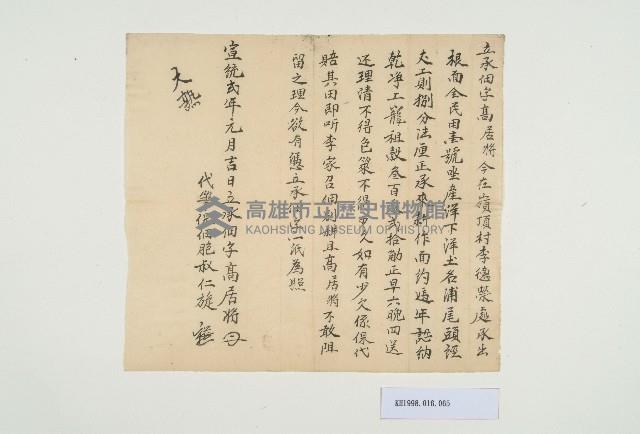 立承佃字髙居將今在嶺頂村李德榮處承出
根面全民田壹號坐產洋下洋土名浦尾頭經
丈工則捌分法厘正承來耕作面約遞年認納
乾净工籮租穀叁百弍拾觔正早六晚四送
还理清不得色箕不得少欠如有少欠係保代
賠其田即听李家召佃剉耕且髙居將不敢阻
留之理今欲有憑立承佃字一紙為照
宣統弍年元月吉日立承佃字髙居將
代坐保佃胞叔仁旋
大熟
高雄市立歷史博物館
KAOHSIUNG MUSEUM OF HISTORY
KH1998.016.065